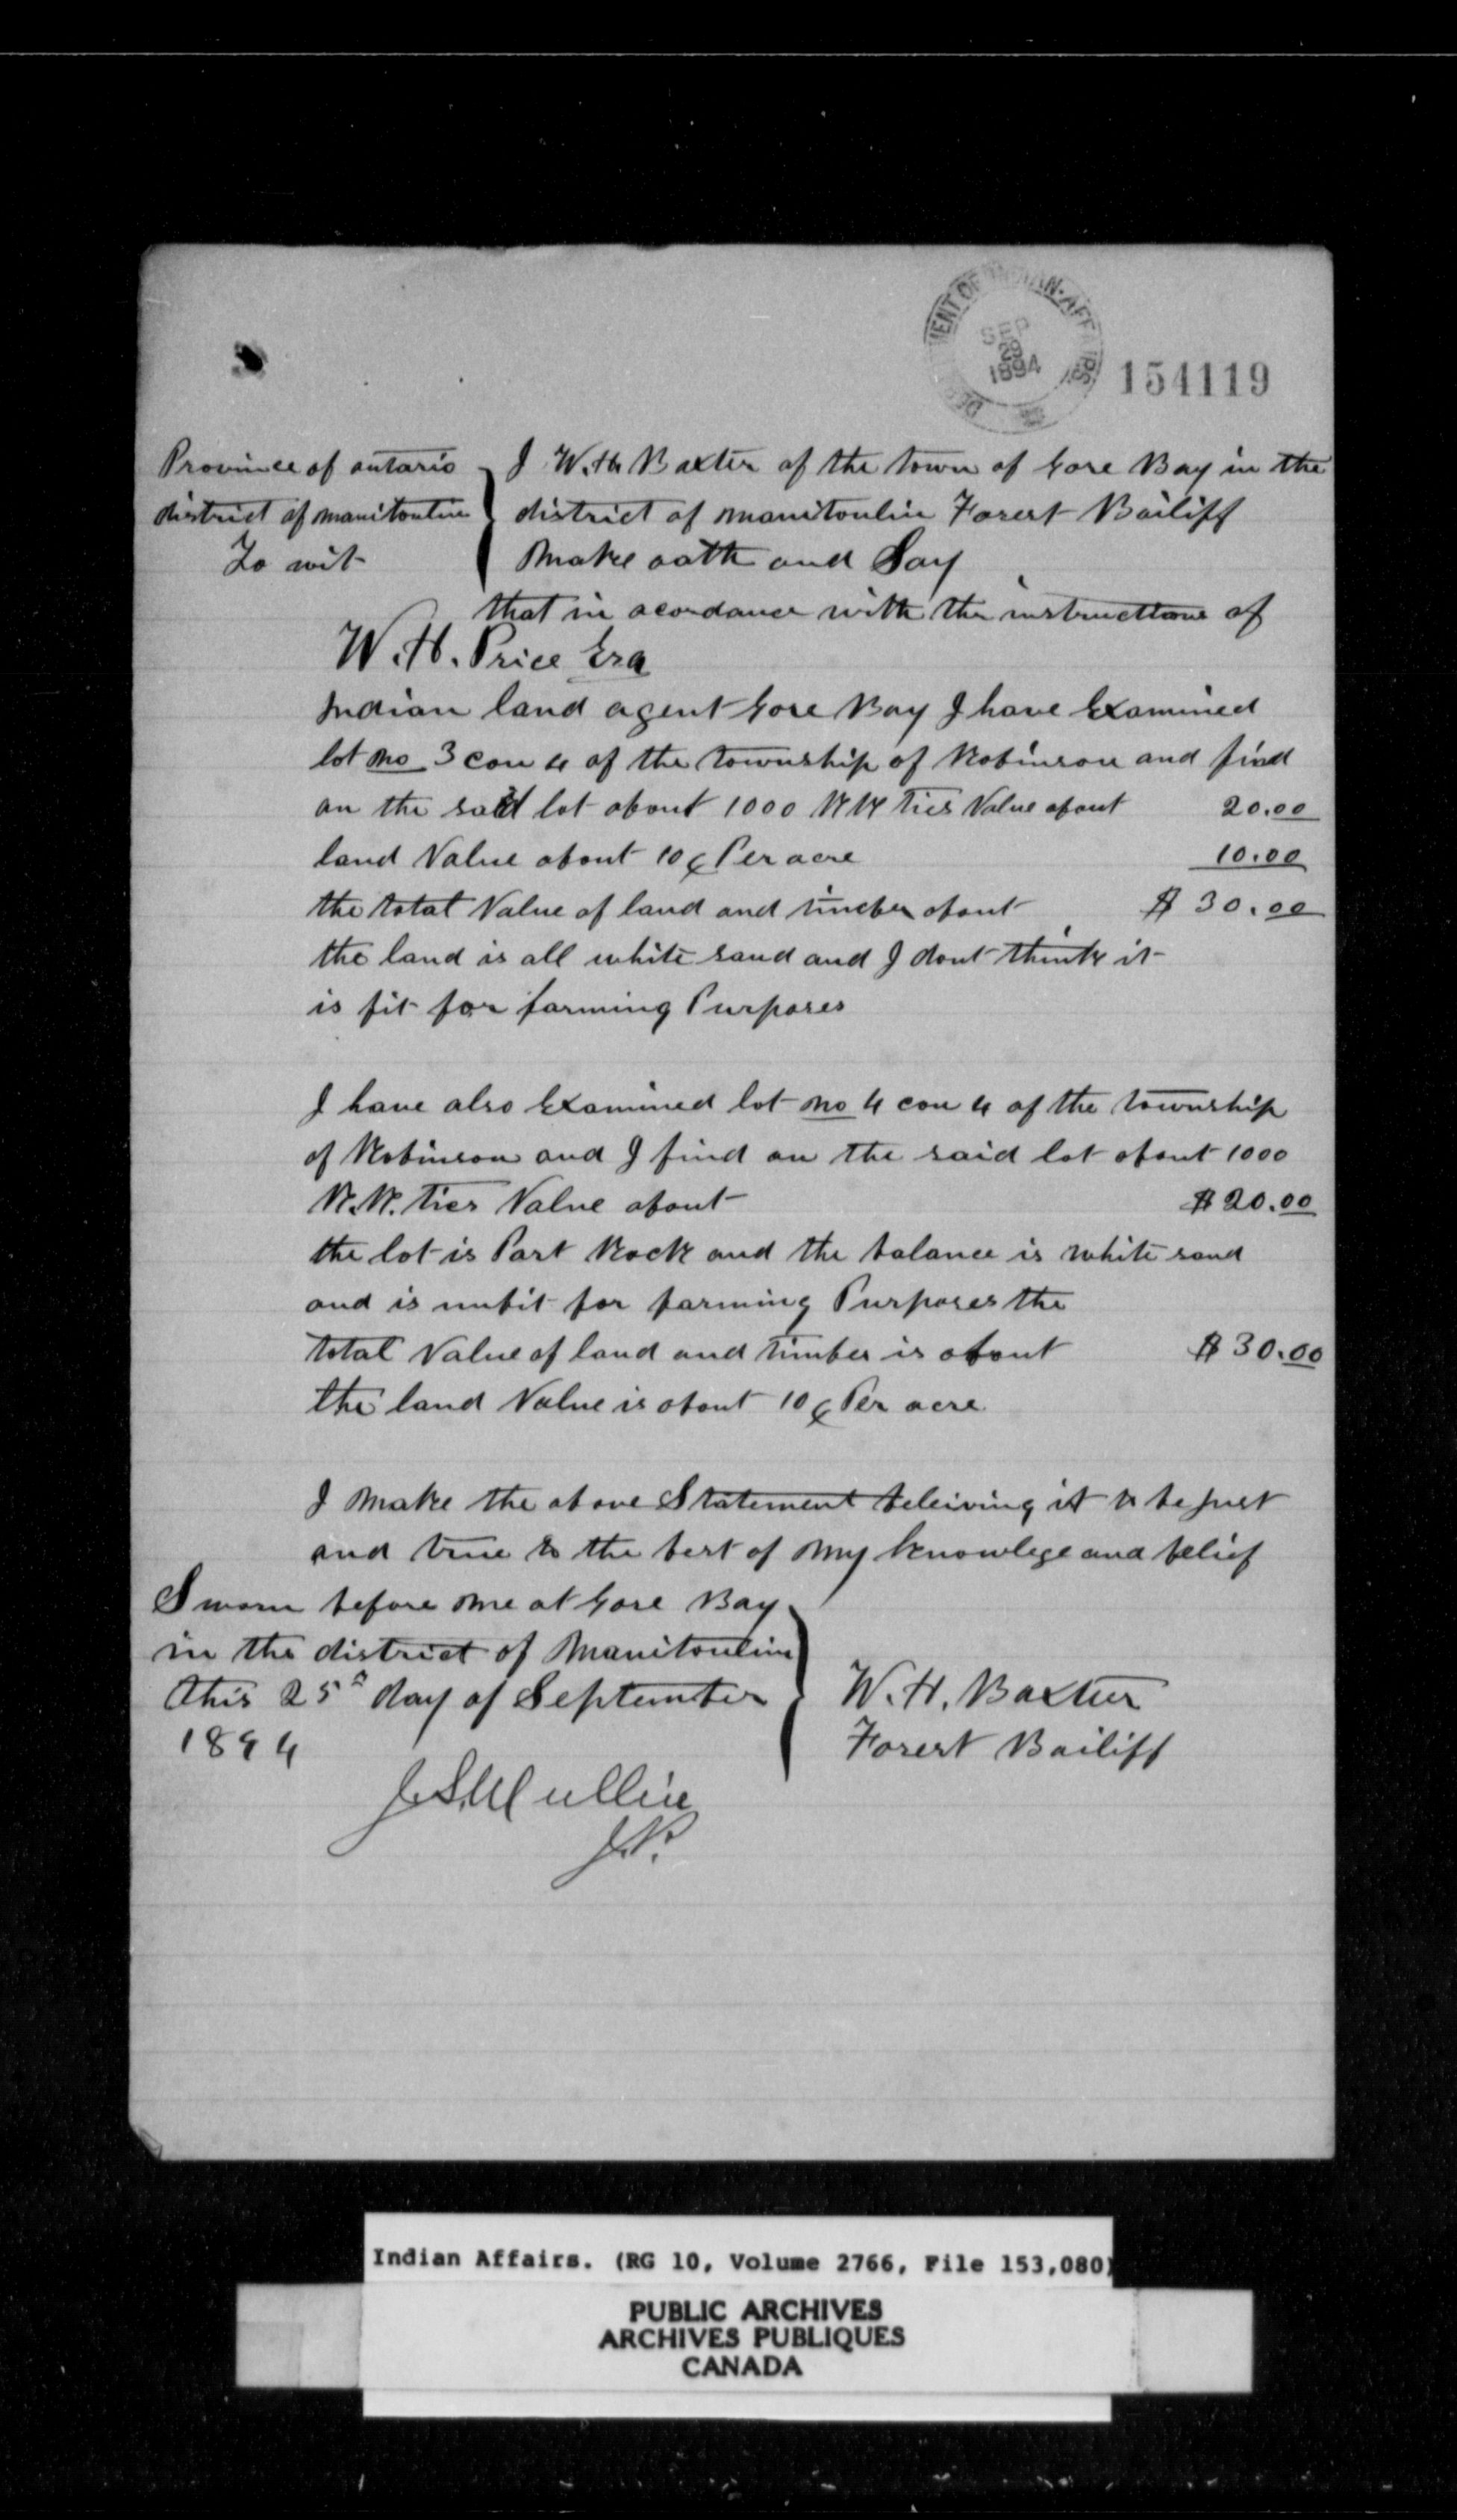 DEPARTMENT OF INDIAN AFFAIRS
SEP
29
1894
154119
Province of ontario
district of manitoulin
To wit
I W. H. Baxter of the town of Gore Bay in the
district of manitoulin Forest Bailiff
Make oath and Say
that in acordance with the instructions of
W. H. Price Esq
Indian land agent Gore Bay I have Examined
lot no 3 con 4 of the township of Robinson and find
on the said lot about 1000 R R ties Value about 20.00
land Value about 10¢ Per acre 10.00
the total Value of land and timber about $ 30.00
the land is all white sand and I dont think it
is fit for farming Purposes
I have also Examined lot no 4 con 4 of the township
of Robinson and I find on the said lot about 1000
R.R. ties Value about $20.00
the lot is Part Rock and the balance is white sand
and is unfit for farming Purposes the
total Value of land and timber is about $ 30.00
the land Value is about 10¢ Per acre
I Make the above Statement beleiving it to be just
and true to the best of My knowlege and belief
Sworn before me at Gore Bay
in the district of Manitoulin
this 25 day of September
1894
W. H. Baxter
Forest Bailiff
J.P.
Indian Affairs. (RG 10, Volume 2766, File 153,080)
PUBLIC ARCHIVES
ARCHIVES PUBLIQUES
CANADA